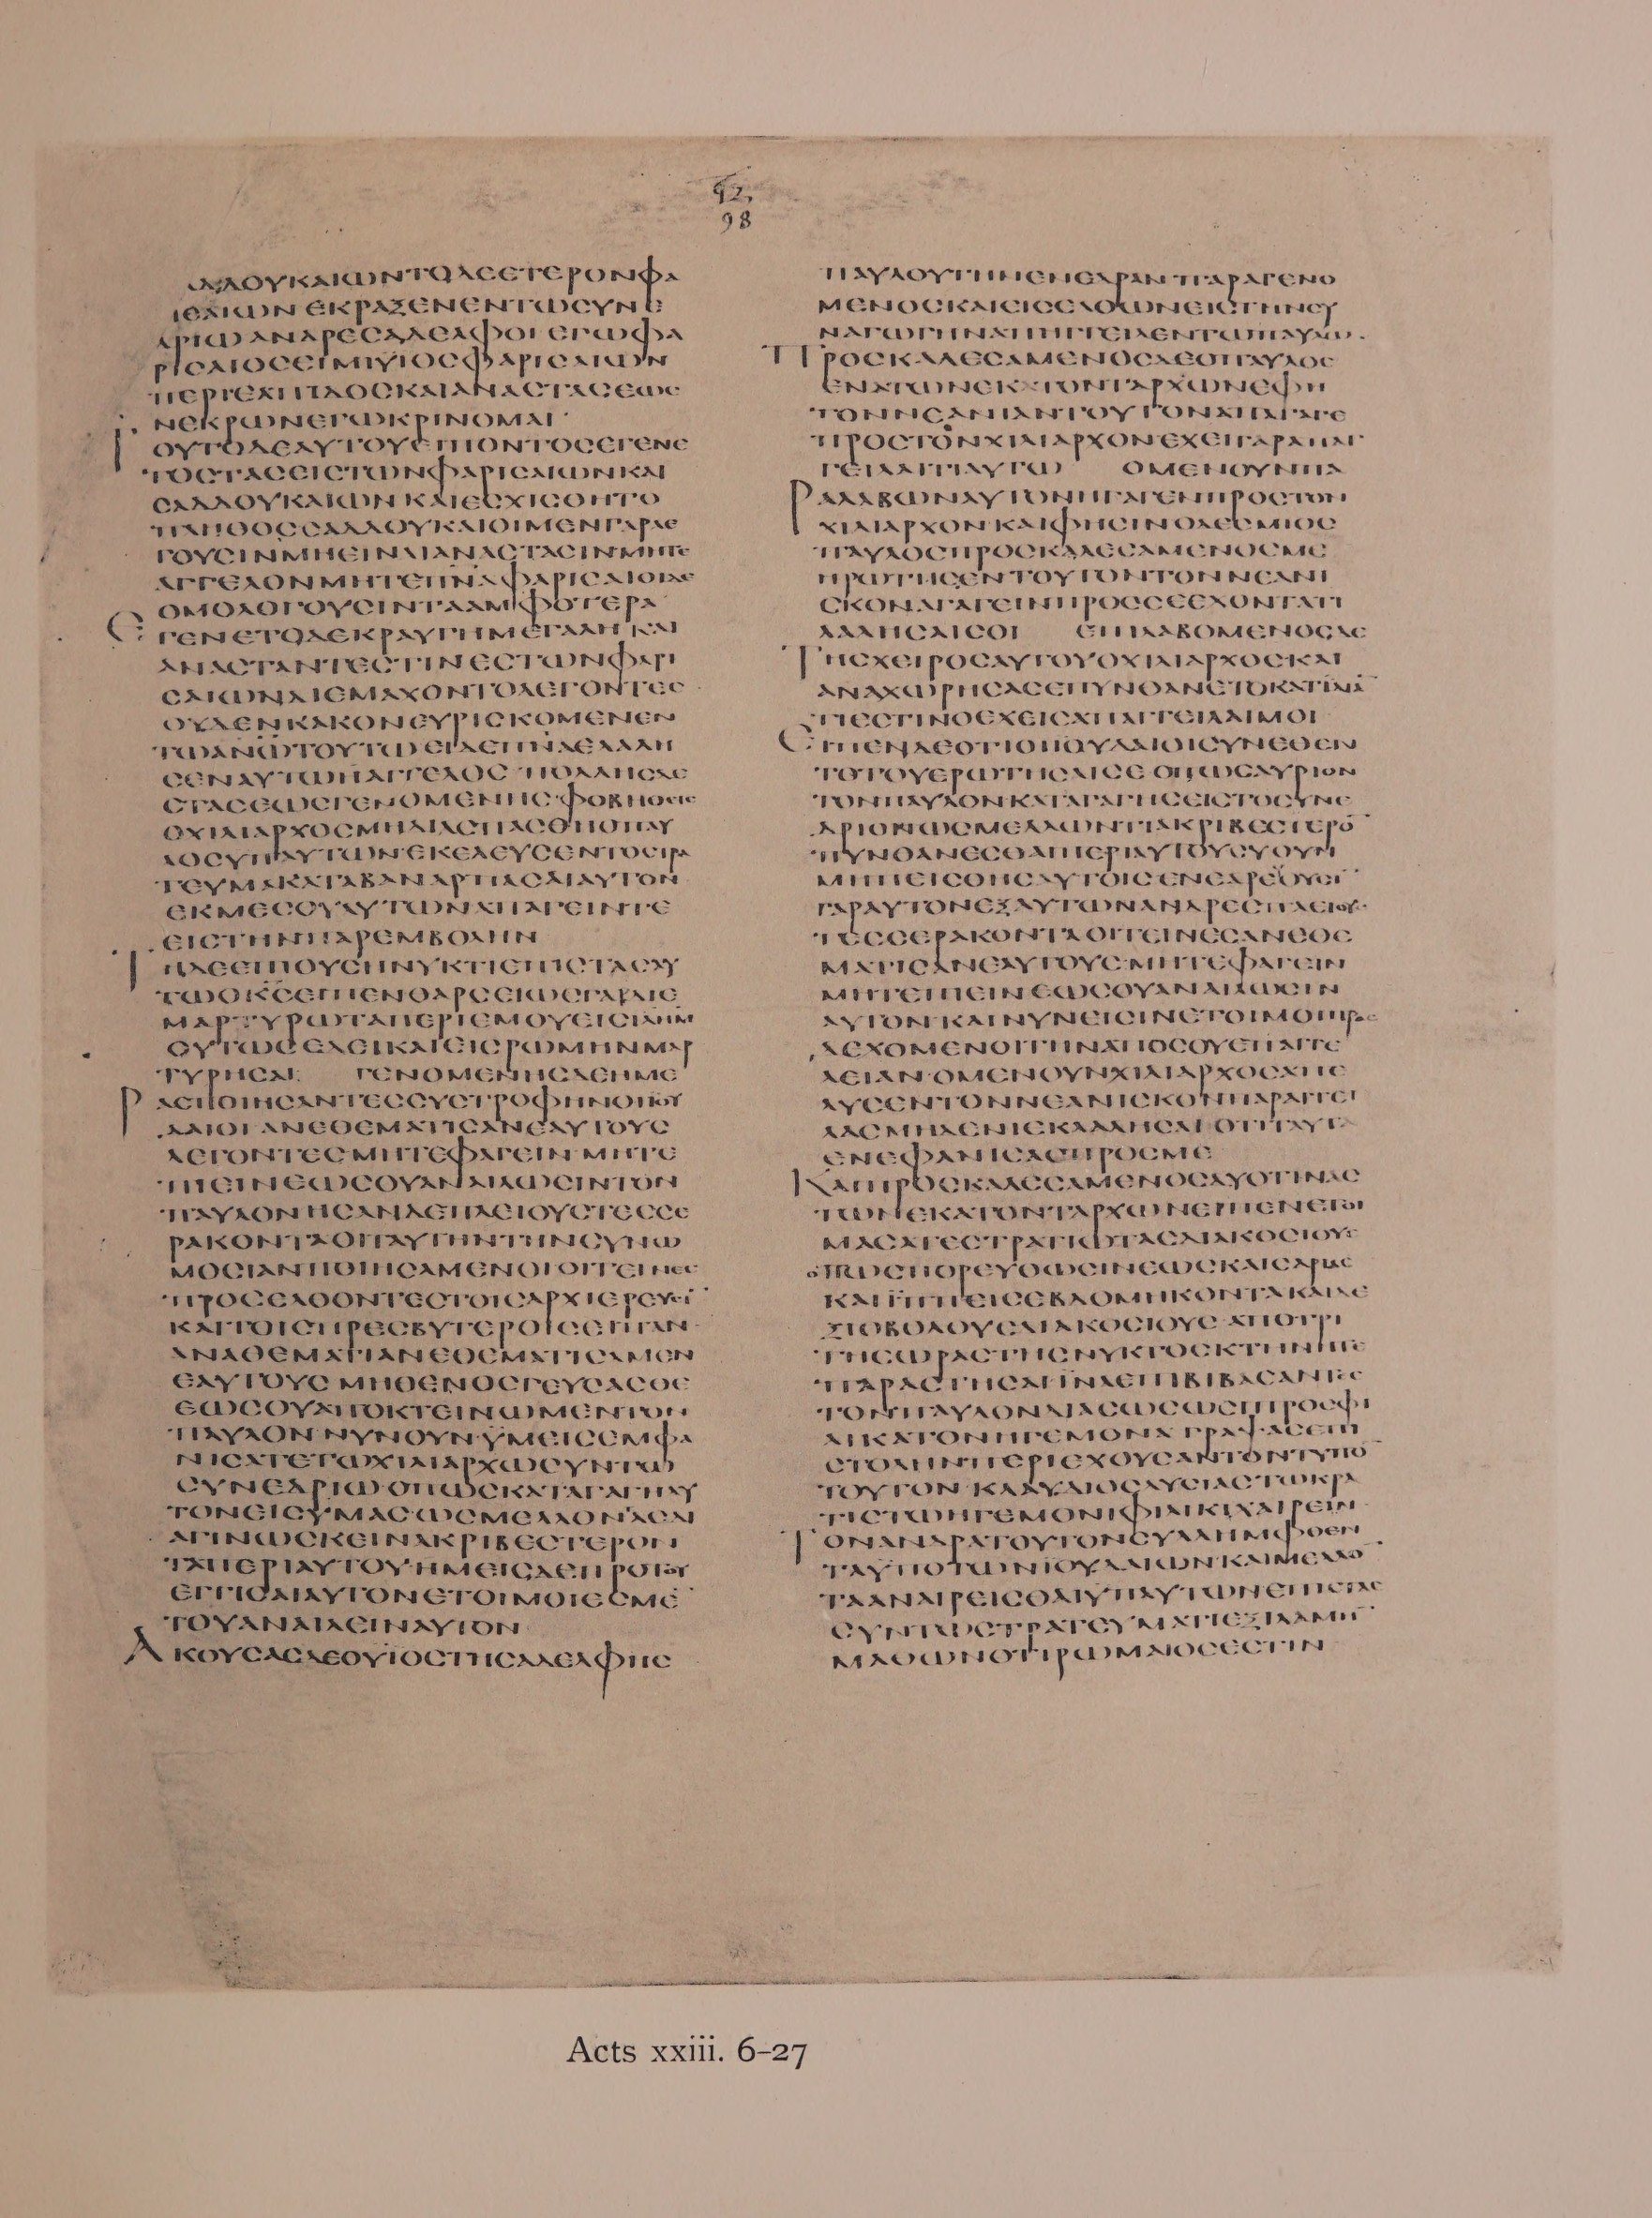 92,
98
ΔΔΟΥΚΑΙΩΝΤΟΔΕΕΤΕΡΟΝΦΑ
ΙϹΑΙΩΝΕΚΡΑΖΕΝΕΝΤΩϹΥΝΕ
ΔΡΙΩΑΝΔΡΕϹΑΔΕΛΦΟΙΕΓΩΦΑ
ΡΙϹΑΙΟϹΕΙΜΙΥΙΟϹΦΑΡΙϹΑΙΩΝ
ΠΕΡΙΕΛΠΙΔΟϹΚΑΙΑΝΑϹΤΑϹΕΩϹ
ΝΕΚΡΩΝΕΓΩΚΡΙΝΟΜΑΙ
ΤΟΥΤΟΔΕΑΥΤΟΥΕΙΠΟΝΤΟϹΕΓΕΝΕ
ΤΟϹΤΑϹΕΙϹΤΩΝΦΑΡΙϹΑΙΩΝΚΑΙ
ϹΑΔΔΟΥΚΑΙΩΝΚΑΙΕϹΧΙϹΘΗΤΟ
ΠΛΗΘΟϹϹΑΔΔΟΥΚΑΙΟΙΜΕΝΓΑΡΛΕ
ΓΟΥϹΙΝΜΗΕΙΝΑΙΑΝΑϹΤΑϹΙΝΜΗΤΕ
ΑΓΓΕΛΟΝΜΗΤΕΠΝΑΦΑΡΙϹΑΙΟΙΔΕ
ΟΜΟΛΟΓΟΥϹΙΝΤΑΑΜΦΟΤΕΡΑ
ΕΓΕΝΕΤΟΔΕΚΡΑΥΓΗΜΕΓΑΛΗΚΑΙ
ΑΝΑϹΤΑΝΤΕϹΤΙΝΕϹΤΩΝΦΑΡΙ
ϹΑΙΩΝΔΙΕΜΑΧΟΝΤΟΛΕΓΟΝΤΕϹ
ΟΥΔΕΝΚΑΚΟΝΕΥΡΙϹΚΟΜΕΝΕΝ
ΤΩΑΝΩΤΟΥΤΩΕΙΔΕΠΝΑΕΛΑΛΗ
ϹΕΝΑΥΤΩΗΑΓΓΕΛΟϹΠΟΛΛΗϹΔΕ
ϹΤΑϹΕΩϹΓΕΝΟΜΕΝΗϹΦΟΒΗΘΕΙϹ
ΟΧΙΛΙΑΡΧΟϹΜΗΔΙΑϹΠΑϹΘΗΟΠΑΥ
ΛΟϹΥΠΑΥΤΩΝΕΚΕΛΕΥϹΕΝΤΟϹΤΡΑ
ΤΕΥΜΑΚΑΤΑΒΑΝΑΡΠΑϹΑΙΑΥΤΟΝ
ΕΚΜΕϹΟΥΑΥΤΩΝΑΠΑΓΕΙΝΤΕ
ΕΙϹΤΗΝΠΑΡΕΜΒΟΛΗΝ
ΤΗΔΕΕΠΙΟΥϹΗΝΥΚΤΙΕΠΙϹΤΑϹΑΥ
ΤΩΟΚϹΕΙΠΕΝΘΑΡϹΕΙΩϹΓΑΡΔΙΕ
ΜΑΡΤΥΡΩΤΑΠΕΡΙΕΜΟΥΕΙϹΙΛΗΜ
ΟΥΤΩϹϹΕΔΕΙΚΑΙΕΙϹΡΩΜΗΝΜΑΡ
ΤΥΡΗϹΑΙ ΓΕΝΟΜΕΝΗϹΔΕΗΜΕ
ΡΑϹΠΟΙΗϹΑΝΤΕϹϹΥϹΤΡΟΦΗΝΟΙΙΟΥ
ΔΑΙΟΙΑΝΕΘΕΜΑΤΙϹΑΝΕΑΥΤΟΥϹ
ΛΕΓΟΝΤΕϹΜΗΤΕΦΑΓΕΙΝΜΗΤΕ
ΠΙΕΙΝΕΩϹΟΥΑΝΑΠΟΚΤΕΙΝΩϹΙΝΤΟΝ
ΠΑΥΛΟΝΗϹΑΝΔΕΠΛΕΙΟΥϹΤΕϹϹΕ
ΡΑΚΟΝΤΑΟΙΤΑΥΤΗΝΤΗΝϹΥΝΩ
ΜΟϹΙΑΝΠΟΙΗϹΑΜΕΝΟΙΟΙΤΕΙΝΕϹ
ΠΡΟϹΕΛΘΟΝΤΕϹΤΟΙϹΑΡΧΙΕΡΕΥϹΙ
ΚΑΙΤΟΙϹΠΡΕϹΒΥΤΕΡΟΙϹΕΙΠΑΝ
ΑΝΑΘΕΜΑΤΙΑΝΕΘΕΜΑΤΙϹΑΜΕΝ
ΕΑΥΤΟΥϹΜΗΘΕΝΟϹΓΕΥϹΑϹΘΕ
ΕΩϹΟΥΑΠΟΚΤΕΙΝΩΜΕΝΤΟΝ
ΠΑΥΛΟΝΝΥΝΟΥΝΫΜΕΙϹΕΜΦΑ
ΝΙϹΑΤΕΤΩΧΙΛΙΑΡΧΩϹΥΝΤΩ
ϹΥΝΕΔΡΙΩΟΠΩϹΚΑΤΑΓΑΓΗΑΥ
ΤΟΝΕΙϹΥΜΑϹΩϹΜΕΛΛΟΝΤΑϹΔΙ
ΑΓΙΝΩϹΚΕΙΝΑΚΡΙΒΕϹΤΕΡΟΝ
ΤΑΠΕΡΙΑΥΤΟΥΗΜΕΙϹΔΕΠΡΟΤΟΥ
ΕΓΓΙϹΑΙΑΥΤΟΝΕΤΟΙΜΟΙΕϹΜΕ
ΤΟΥΑΝΑΙΛΕΙΝΑΥΤΟΝ
ΑΚΟΥϹΑϹΔΕΟΥΪΟϹΤΗϹΑΔΕΛΦΗϹ
ΠΑΥΛΟΥΤΗΝΕΝΕΔΡΑΝΠΑΡΑΓΕΝΟ
ΜΕΝΟϹΚΑΙΕΙϹΕΛΘΩΝΕΙϹΤΗΝϹΥ
ΝΑΓΩΓΗΝΑΠΗΓΓΕΙΛΕΝΤΩΠΑΥΛΩ
ΠΡΟϹΚΑΛΕϹΑΜΕΝΟϹΔΕΟΠΑΥΛΟϹ
ΕΝΑΤΩΝΕΚΑΤΟΝΤΑΡΧΩΝΕΦΗ
ΤΟΝΝΕΑΝΙΑΝΤΟΥΤΟΝΑΠΑΓΑΓΕ
ΠΡΟϹΤΟΝΧΙΛΙΑΡΧΟΝΕΧΕΙΓΑΡΑΠΑΓ
ΓΕΙΛΑΙΤΙΑΥΤΩ ΟΜΕΝΟΥΝΠΑ
ΡΑΛΑΒΩΝΑΥΤΟΝΗΓΑΓΕΝΠΡΟϹΤΟΝ
ΧΙΛΙΑΡΧΟΝΚΑΙΦΗϹΙΝΟΔΕϹΜΙΟϹ
ΠΑΥΛΟϹΠΡΟϹΚΑΛΕϹΑΜΕΝΟϹΜΕ
ΗΡΩΤΗϹΕΝΤΟΥΤΟΝΤΟΝΝΕΑΝΙ
ϹΚΟΝΑΓΑΓΕΙΝΠΡΟϹϹΕΕΧΟΝΤΑΤΙ
ΛΑΛΗϹΑΙϹΟΙ ΕΠΙΛΑΒΟΜΕΝΟϹΔΕ
ΤΗϹΧΕΙΡΟϹΑΥΤΟΥΟΧΙΛΙΑΡΧΟϹΚΑΙ
ΑΝΑΧΩΡΗϹΑϹΕΠΥΝΘΑΝΕΤΟΚΑΤΙΔΙΑ
ΤΙΕϹΤΙΝΟΕΧΕΙϹΑΠΑΓΓΕΙΛΑΙΜΟΙ
ΕΙΠΕΝΔΕΟΤΙΟΙΙΟΥΔΑΙΟΙϹΥΝΕΘΕΝ
ΤΟΤΟΥΕΡΩΤΗϹΑΙϹΕΟΠΩϹΑΥΡΙΟΝ
ΤΟΝΠΑΥΛΟΝΚΑΤΑΓΑΓΗϹΕΙϹΤΟϹΥΝΕ
ΔΡΙΟΝΩϹΜΕΛΛΩΝΤΙΑΚΡΙΒΕϹΤΕΡΟ
ΠΥΝΘΑΝΕϹΘΑΙΠΕΡΙΑΥΤΟΥϹΥΟΥΝ
ΜΗΠΕΙϹΘΗϹΑΥΤΟΙϹΕΝΕΔΡΕΥΟΥϹΙ
ΓΑΡΑΥΤΟΝΕΞΑΥΤΩΝΑΝΔΡΕϹΠΛΕΙΟΥϹ
ΤΕϹϹΕΡΑΚΟΝΤΑΟΙΤΕΙΝΕϹΑΝΕΘΕ
ΜΑΤΙϹΑΝΕΑΥΤΟΥϹΜΗΤΕΦΑΓΕΙΝ
ΜΗΤΕΠΙΕΙΝΕΩϹΟΥΑΝΑΙΛΩϹΙΝ
ΑΥΤΟΝΚΑΙΝΥΝΕΙϹΙΝΕΤΟΙΜΟΙΠΡΟϹ
ΔΕΧΟΜΕΝΟΙΤΗΝΑΠΟϹΟΥΕΠΑΓΓΕ
ΛΕΙΑΝΟΜΕΝΟΥΝΧΙΛΙΑΡΧΟϹΑΠΕ
ΛΥϹΕΝΤΟΝΝΕΑΝΙϹΚΟΝΠΑΡΑΓΓΕΙ
ΛΑϹΜΗΔΕΝΙΕΚΛΑΛΗϹΑΙΟΤΙΤΑΥΤΑ
ΕΝΕΦΑΝΙϹΑϹΠΡΟϹΜΕ
ΚΑΙΠΡΟϹΚΑΛΕϹΑΜΕΝΟϹΔΥΟΤΙΝΑϹ
ΤΩΝΕΚΑΤΟΝΤΑΡΧΩΝΕΙΠΕΝΕΤΟΙ
ΜΑϹΑΤΕϹΤΡΑΤΙΩΤΑϹΔΙΑΚΟϹΙΟΥϹ
ΟΠΩϹΠΟΡΕΥΘΩϹΙΝΕΩϹΚΑΙϹΑΡΙΑϹ
ΚΑΙΪΠΠΕΙϹΕΒΔΟΜΗΚΟΝΤΑΚΑΙΔΕ
ΞΙΟΒΟΛΟΥϹΔΙΑΚΟϹΙΟΥϹΑΠΟΤΡΙ
ΤΗϹΩΡΑϹΤΗϹΝΥΚΤΟϹΚΤΗΝΗΤΕ
ΠΑΡΑϹΤΗϹΑΙΪΝΑΕΠΙΒΙΒΑϹΑΝΤΕϹ
ΤΟΝΠΑΥΛΟΝΔΙΑϹΩϹΩϹΙΠΡΟϹΦΗ
ΛΙΚΑΤΟΝΗΓΕΜΟΝΑΓΡΑΨΑϹΕΠΙ
ϹΤΟΛΗΝΠΕΡΙΕΧΟΥϹΑΝΤΟΝΤΥΠΟ
ΤΟΥΤΟΝΚΛΑΥΔΙΟϹΛΥϹΙΑϹΤΩΚΡΑ
ΤΙϹΤΩΗΓΕΜΟΝΙΦΗΛΙΚΙΧΑΙΡΕΙΝ
ΤΟΝΑΝΔΡΑΤΟΥΤΟΝϹΥΛΛΗΜΦΘΕΝ
ΤΑΥΠΟΤΩΝΪΟΥΔΑΙΩΝΚΑΙΜΕΛΛΟ
ΤΑΑΝΑΙΡΕΙϹΘΑΙΥΠΑΥΤΩΝΕΠΙϹΤΑϹ
ϹΥΝΤΩϹΤΡΑΤΕΥΜΑΤΙΕΞΙΛΑΜΗ
ΜΑΘΩΝΟΤΙΡΩΜΑΙΟϹΕϹΤΙΝ
Acts xxiii. 6–27